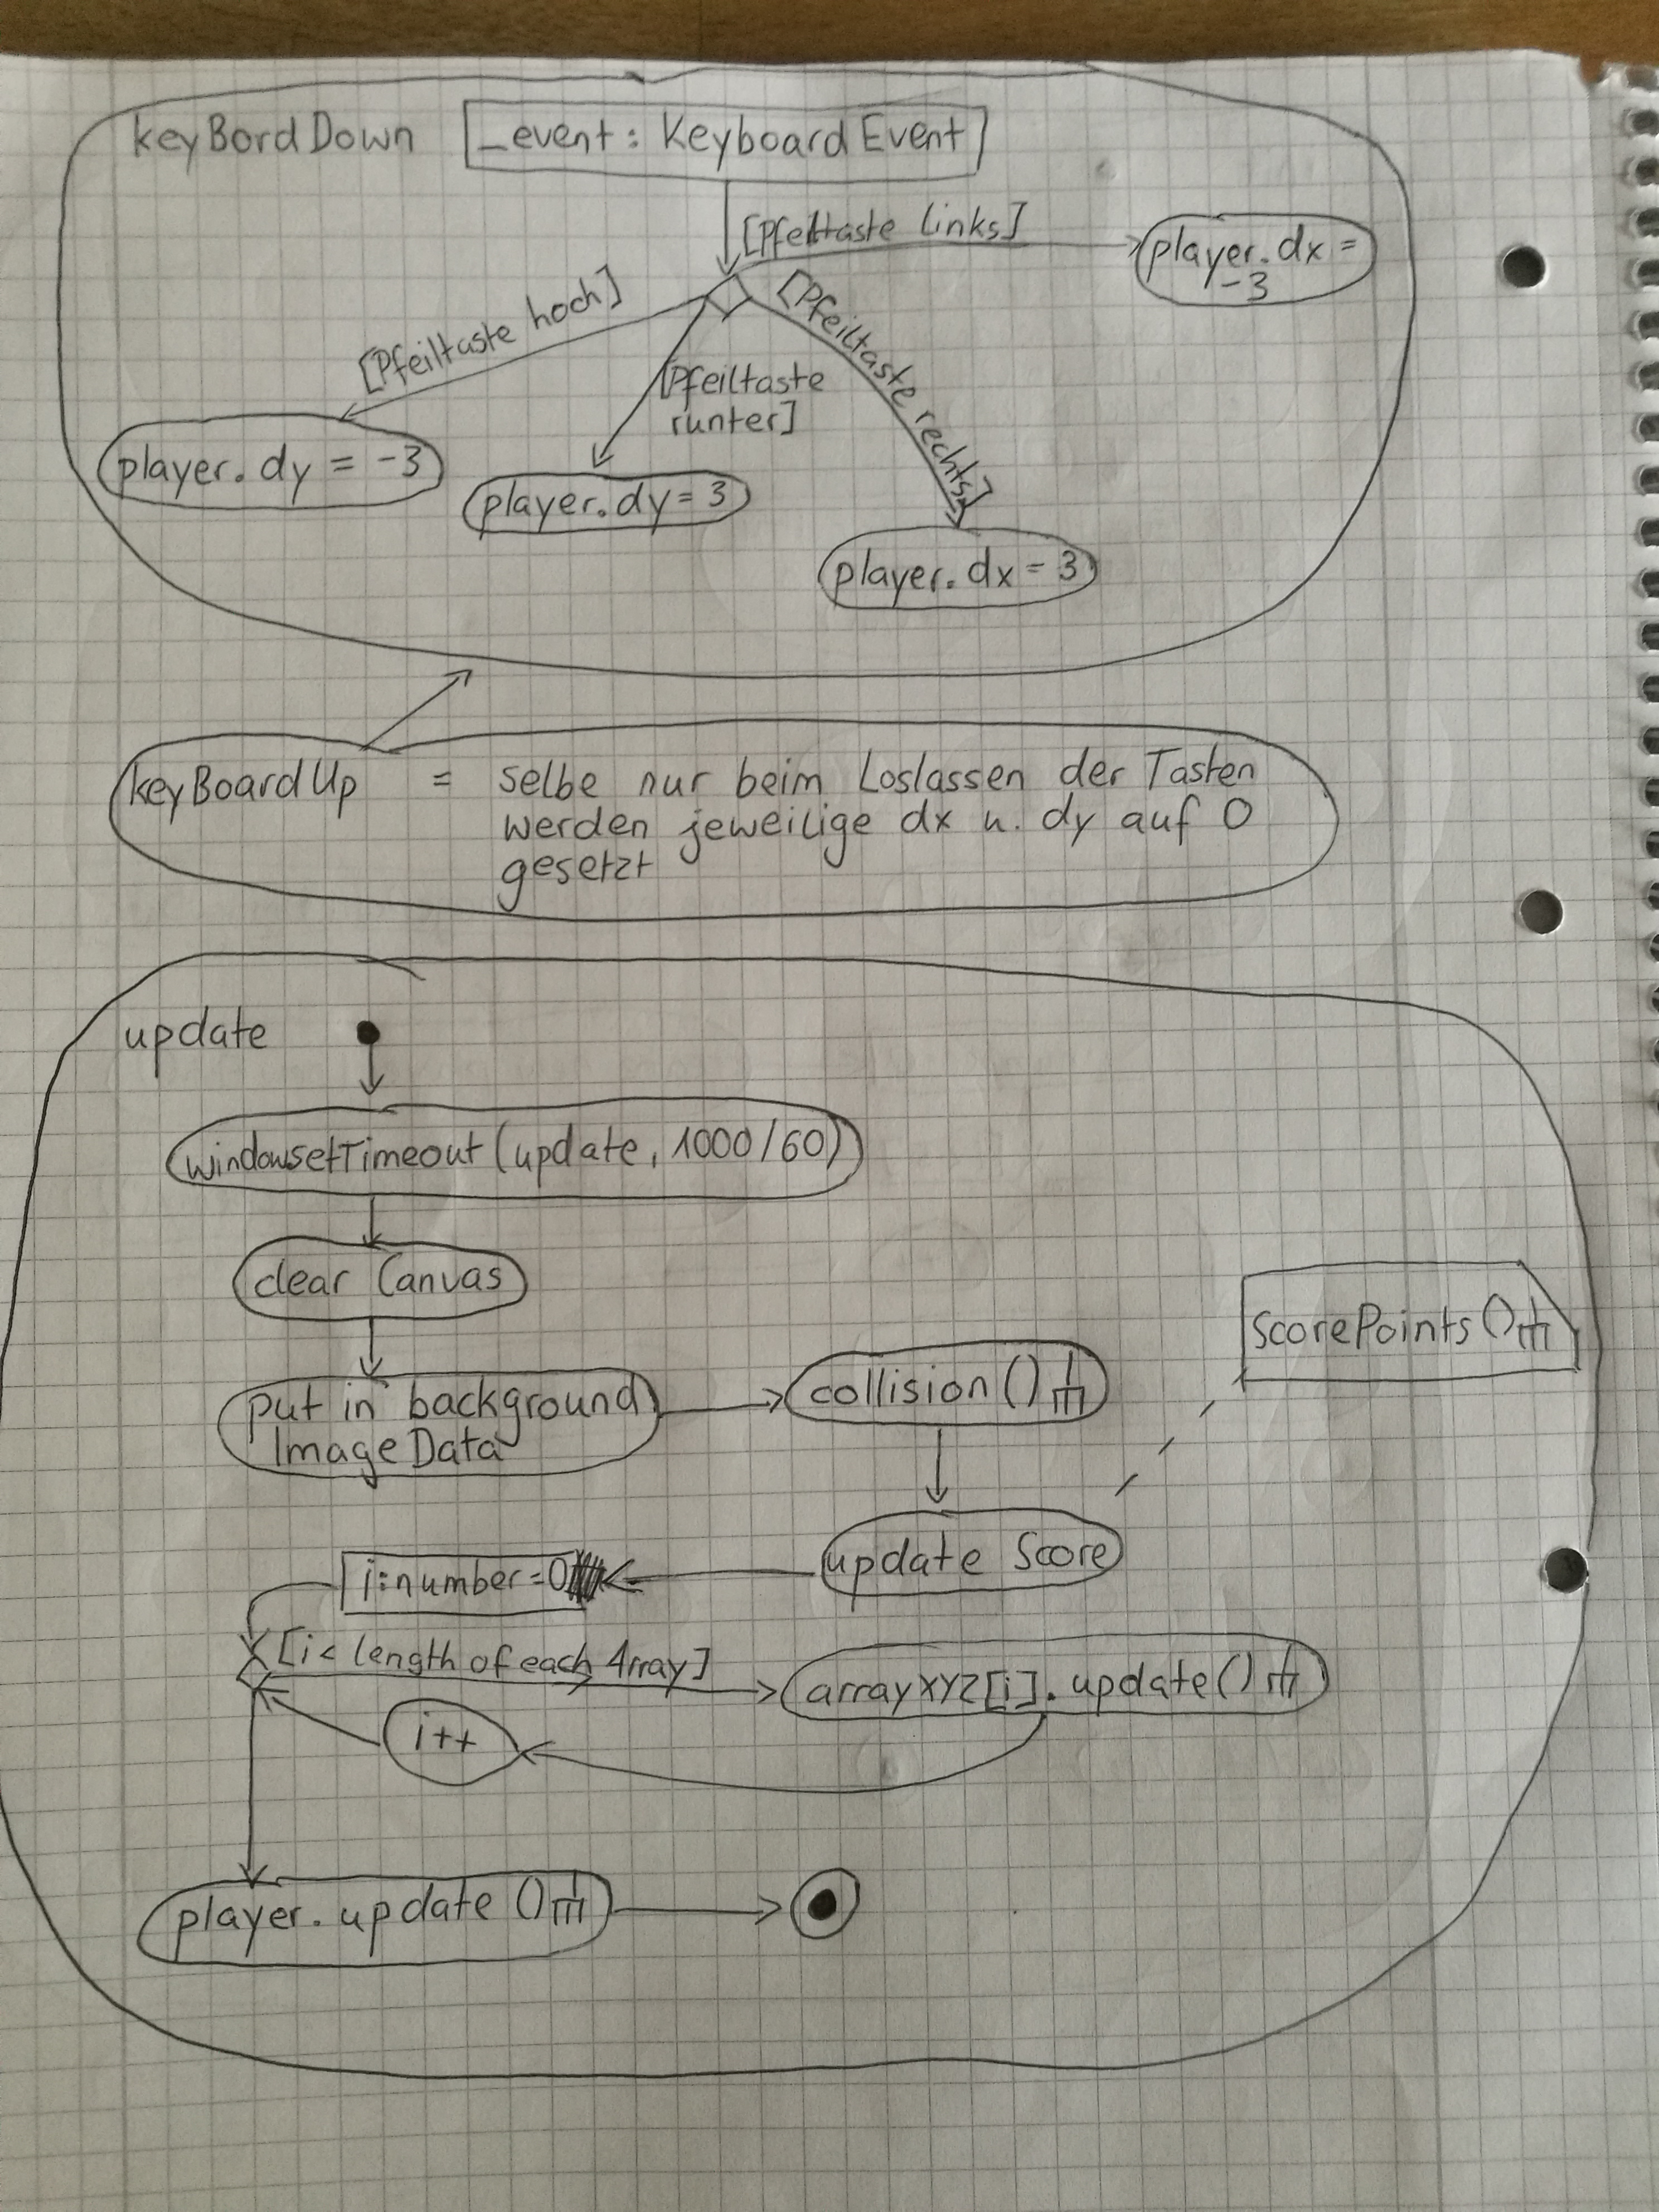 keyBordDown _event: KeyboardEvent
[Pfeiltaste links]
player.dx =
-3
[Pfeiltaste hoch]
[Pfeiltaste
runter]
[Pfeiltaste rechts]
player.dy = -3
player.dy = 3
player.dx = 3
keyBoardUp = selbe nur beim Loslassen der Tasten
werden jeweilige dx u. dy auf 0
gesetzt
update
windowsetTimeout (update, 1000/60)
clear Canvas
ScorePoints()
put in background
ImageData
collision()
update Score
i:number=0
[i < length of each Array]
arrayXYZ[i].update()
i++
player.update()